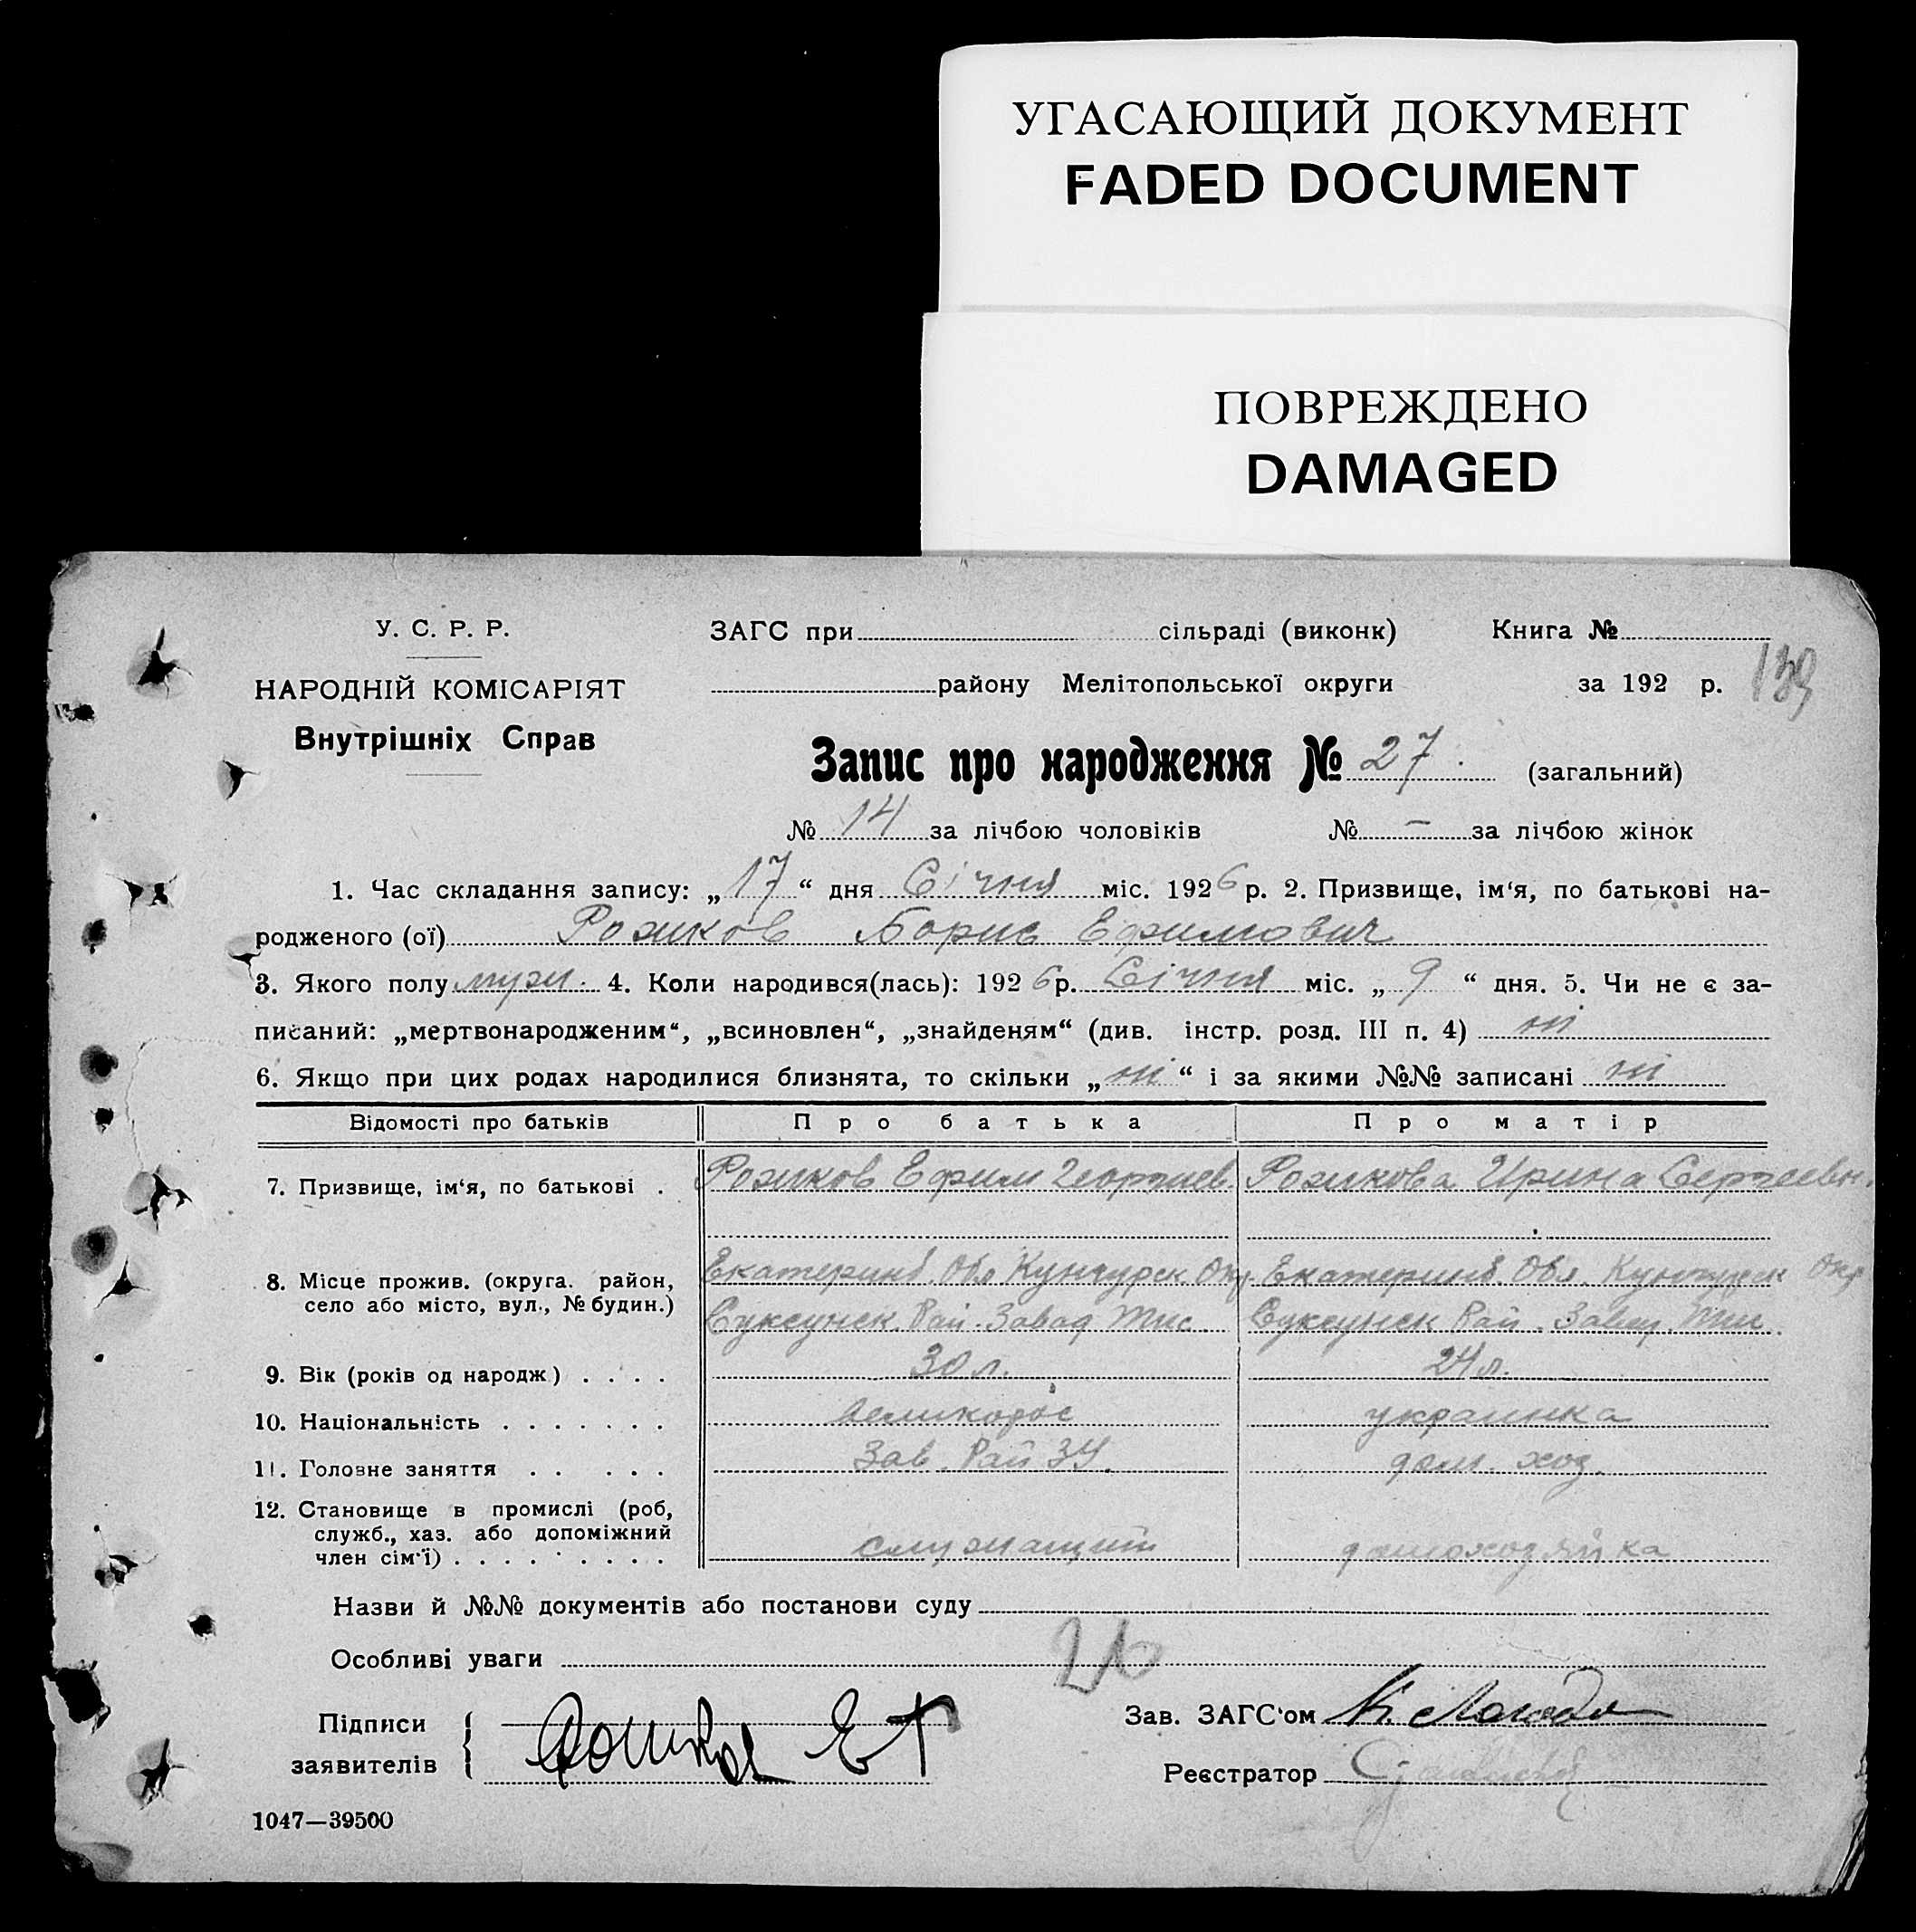 УГАСАЮЩИЙ ДОКУМЕНТ
FADED DOCUMENT
ПОВРЕЖДЕНО
DAMAGED
У. С. Р. Р.
НАРОДНІЙ КОМІСАРІЯТ
Внутрішніх Справ
ЗАГС при сільраді (виконк) Книга №
району Мелітопольської округи за 192 р. 139
Запис про народження № 27. (загальний)
№ 14 за лічбою чоловіків № – за лічбою жінок
1. Час складання запису: „17“ дня Січня міс. 1926 р. 2. Призвище, ім‘я, по батькові на-
родженого (ої) Рожков Борис Ефимович
3. Якого полу муж. 4. Коли народився(лась): 1926 р. Січня міс. „9“ дня. 5. Чи не є за-
писаний: „мертвонародженим“, „всиновлен“, „знайденям“ (див. інстр. розд. III п. 4) ні
6. Якщо при цих родах народилися близнята, то скільки „ні“ і за якими №№ записані ні
Відомості про батьків Про батька Про матір
7. Призвище, ім‘я, по батькові . Рожков Ефим Георгиев. Рожкова Ирина Сергеевн.
8. Місце прожив. (округа. район, Екатеринб. Обл Кунгурск Окр. Екатеринб. Обл. Кунгурск Окр
село або місто, вул., № будин.) Суксунск. Рай. Завод Тис Суксунск Рай. Завод. Тис.
9. Вік (років од народж) . . . . 30 л. 24 л.
10. Національність . . . . . . . великорос украинка
11. Головне заняття . . . . . Зав. Рай ЗУ. дом. хоз.
12. Становище в промислі (роб,
служб., хаз. або допоміжний
член сім‘ї) . . . . . . . . . служащий домохозяйка
Назви й №№ документів або постанови суду
Особливі уваги 26
Підписи
заявителів { Рожков Е Г
Зав. ЗАГС‘ом К.
Реєстратор
1047—39500